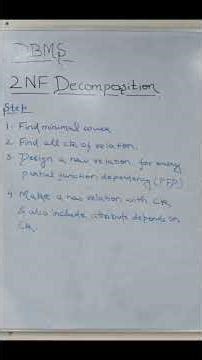 DBMS
2NF Decomposition
Step
1. Find minimal cover
2. Find all CK of relation.
3 Design a new relation for every
partial function dependency (PFD)
4. Make a new relation with CK
& also include attribute depends on
CK.